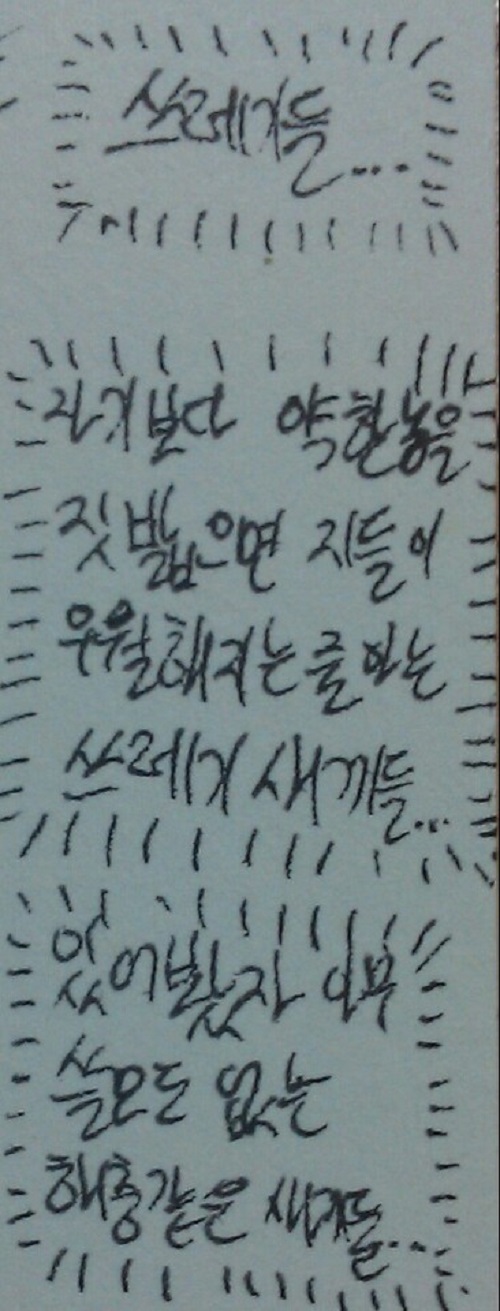 쓰레기들...
자기보다 약한놈을
짓밟으면 지들이
우월해지는 줄 아는
쓰레기 새끼들...
있어봤자 아무
쓸모도 없는
해충같은 새끼들...